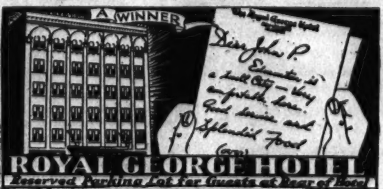 A WINNER
The Royal George Hotel
Dear John P.
Edmonton is
a swell City — Very
comfortable here.
Good service and
Splendid Food
ROYAL GEORGE HOTEL
Reserved Parking Lot for Guests at Rear of Hotel